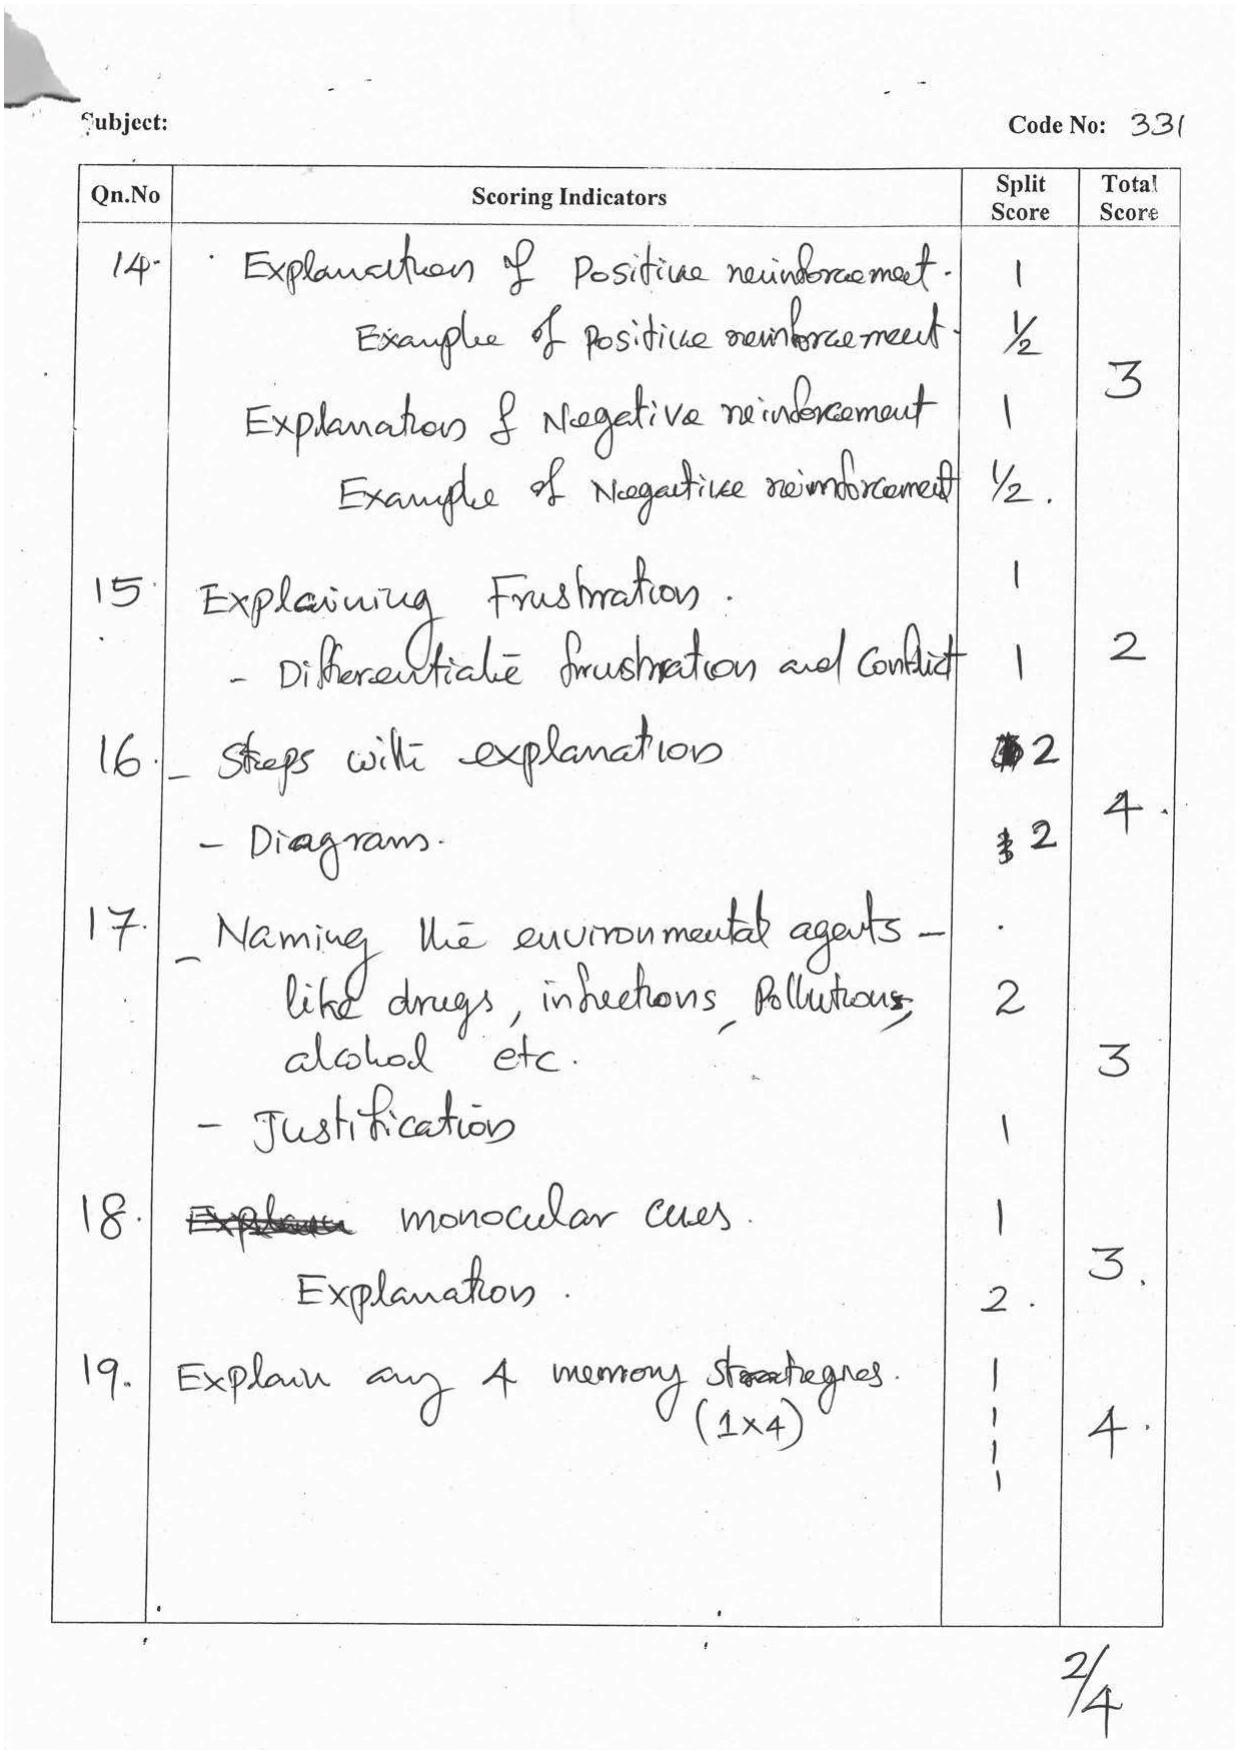 Subject:
Code No: 331
Qn.No Scoring Indicators Split Score Total Score
14. Explanation of Positive reinforcement. 1
Example of Positive reinforcement. 1/2
3
Explanation of Negative reinforcement 1
Example of Negative reinforcement 1/2.
15. Explaining Frustration. 1
- Differentiate frustration and Conflict 1 2
16. - Steps with explanation 2
4.
- Diagram. 2
17. - Naming the environmental agents -
like drugs, infections, Pollutions, 2
alcohol etc. 3
- Justification 1
18. monocular cues. 1
3.
Explanation. 2.
19. Explain any 4 memory strategies. 1
(1x4) 1
4.
1
1
2/4